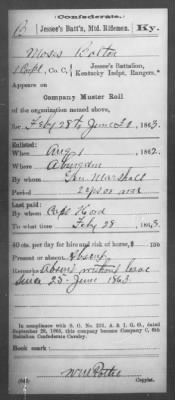 (Confederate.)
B Jessee's Batt'n, Mtd. Riflemen. Ky.
Moses
Capt, Co. C, Jessee's Battalion,
Kentucky Indpt. Rangers.*
Appears on
Company Muster Roll
of the organization named above,
for Feby 28 to June 30, 1863.
Enlisted:
When Augt, 1862.
Where Abingdon
By whom Gen. Marshall
Period 2 yrs or war
Last paid:
By whom Capt
To what time Feby 28, 1863.
40 cts. per day for hire and risk of horse, $ 100
Present or absent Absent
Remarks: Absent without leave
since 25 June 1863
* In compliance with S. O. No. 231, A. & I. G. O., dated
September 28, 1863, this company became Company C, 6th
Battalion Confederate Cavalry.
Book mark:
(642)
Copyist.